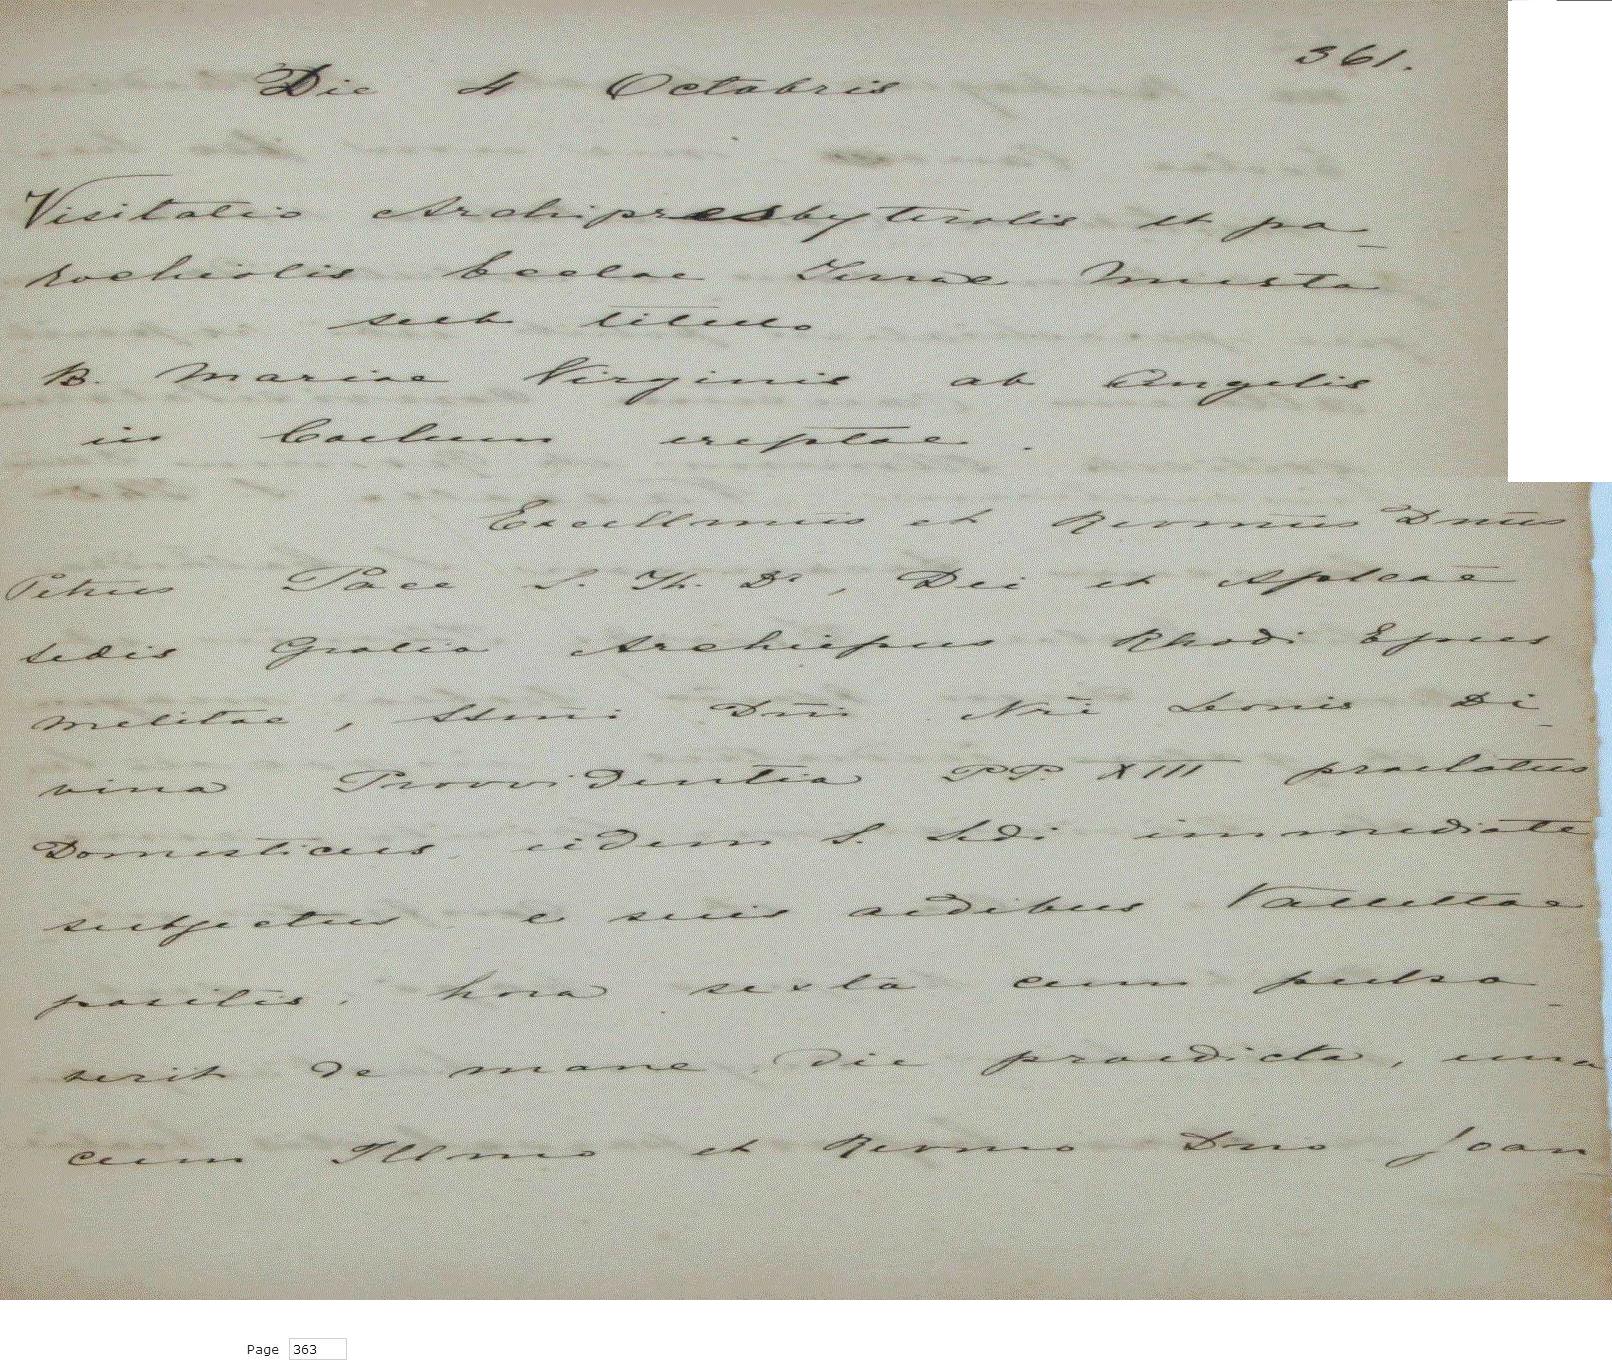 361.
Die 4 Octobris
Visitatio Archipresbyteralis et pa_
rochialis Ecclae Terrae Musta
sub titulo
B. Mariae Virginis ab Angelis
in Coelum ereptae.
Excellmūs et Revmūs Dnūs
Petrus Pace S. Th. Dr, Dei et Aplcae
sedis Gratia Archiepus Rhodi Epus
Melitae, SSmi Dnī Nrī Leonis Di_
vina Provvidentia PP. XIII praelatus
Domesticus eidem S. Sedi immediate
subjectus e suis aedibus Vallettae
positis, hora sexta cum pulsa_
serit de mane die praedicta, una
cum Illmo et Revmo Dno Joan
Page 363